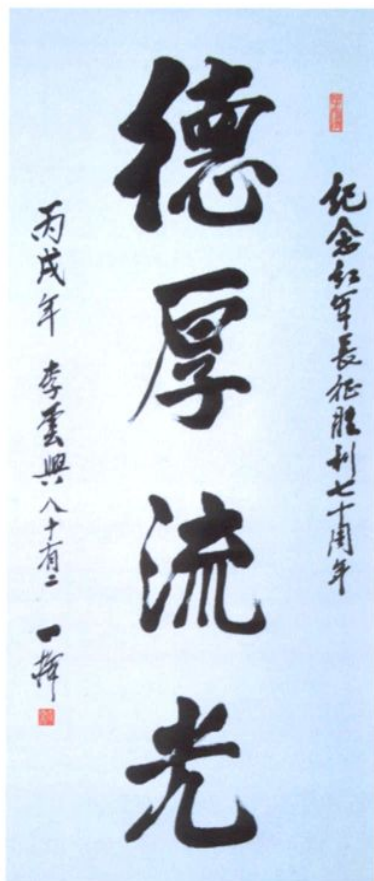 紀念红军長征胜利七十周年
德厚流光
丙戌年 李雲興八十有二 一揮